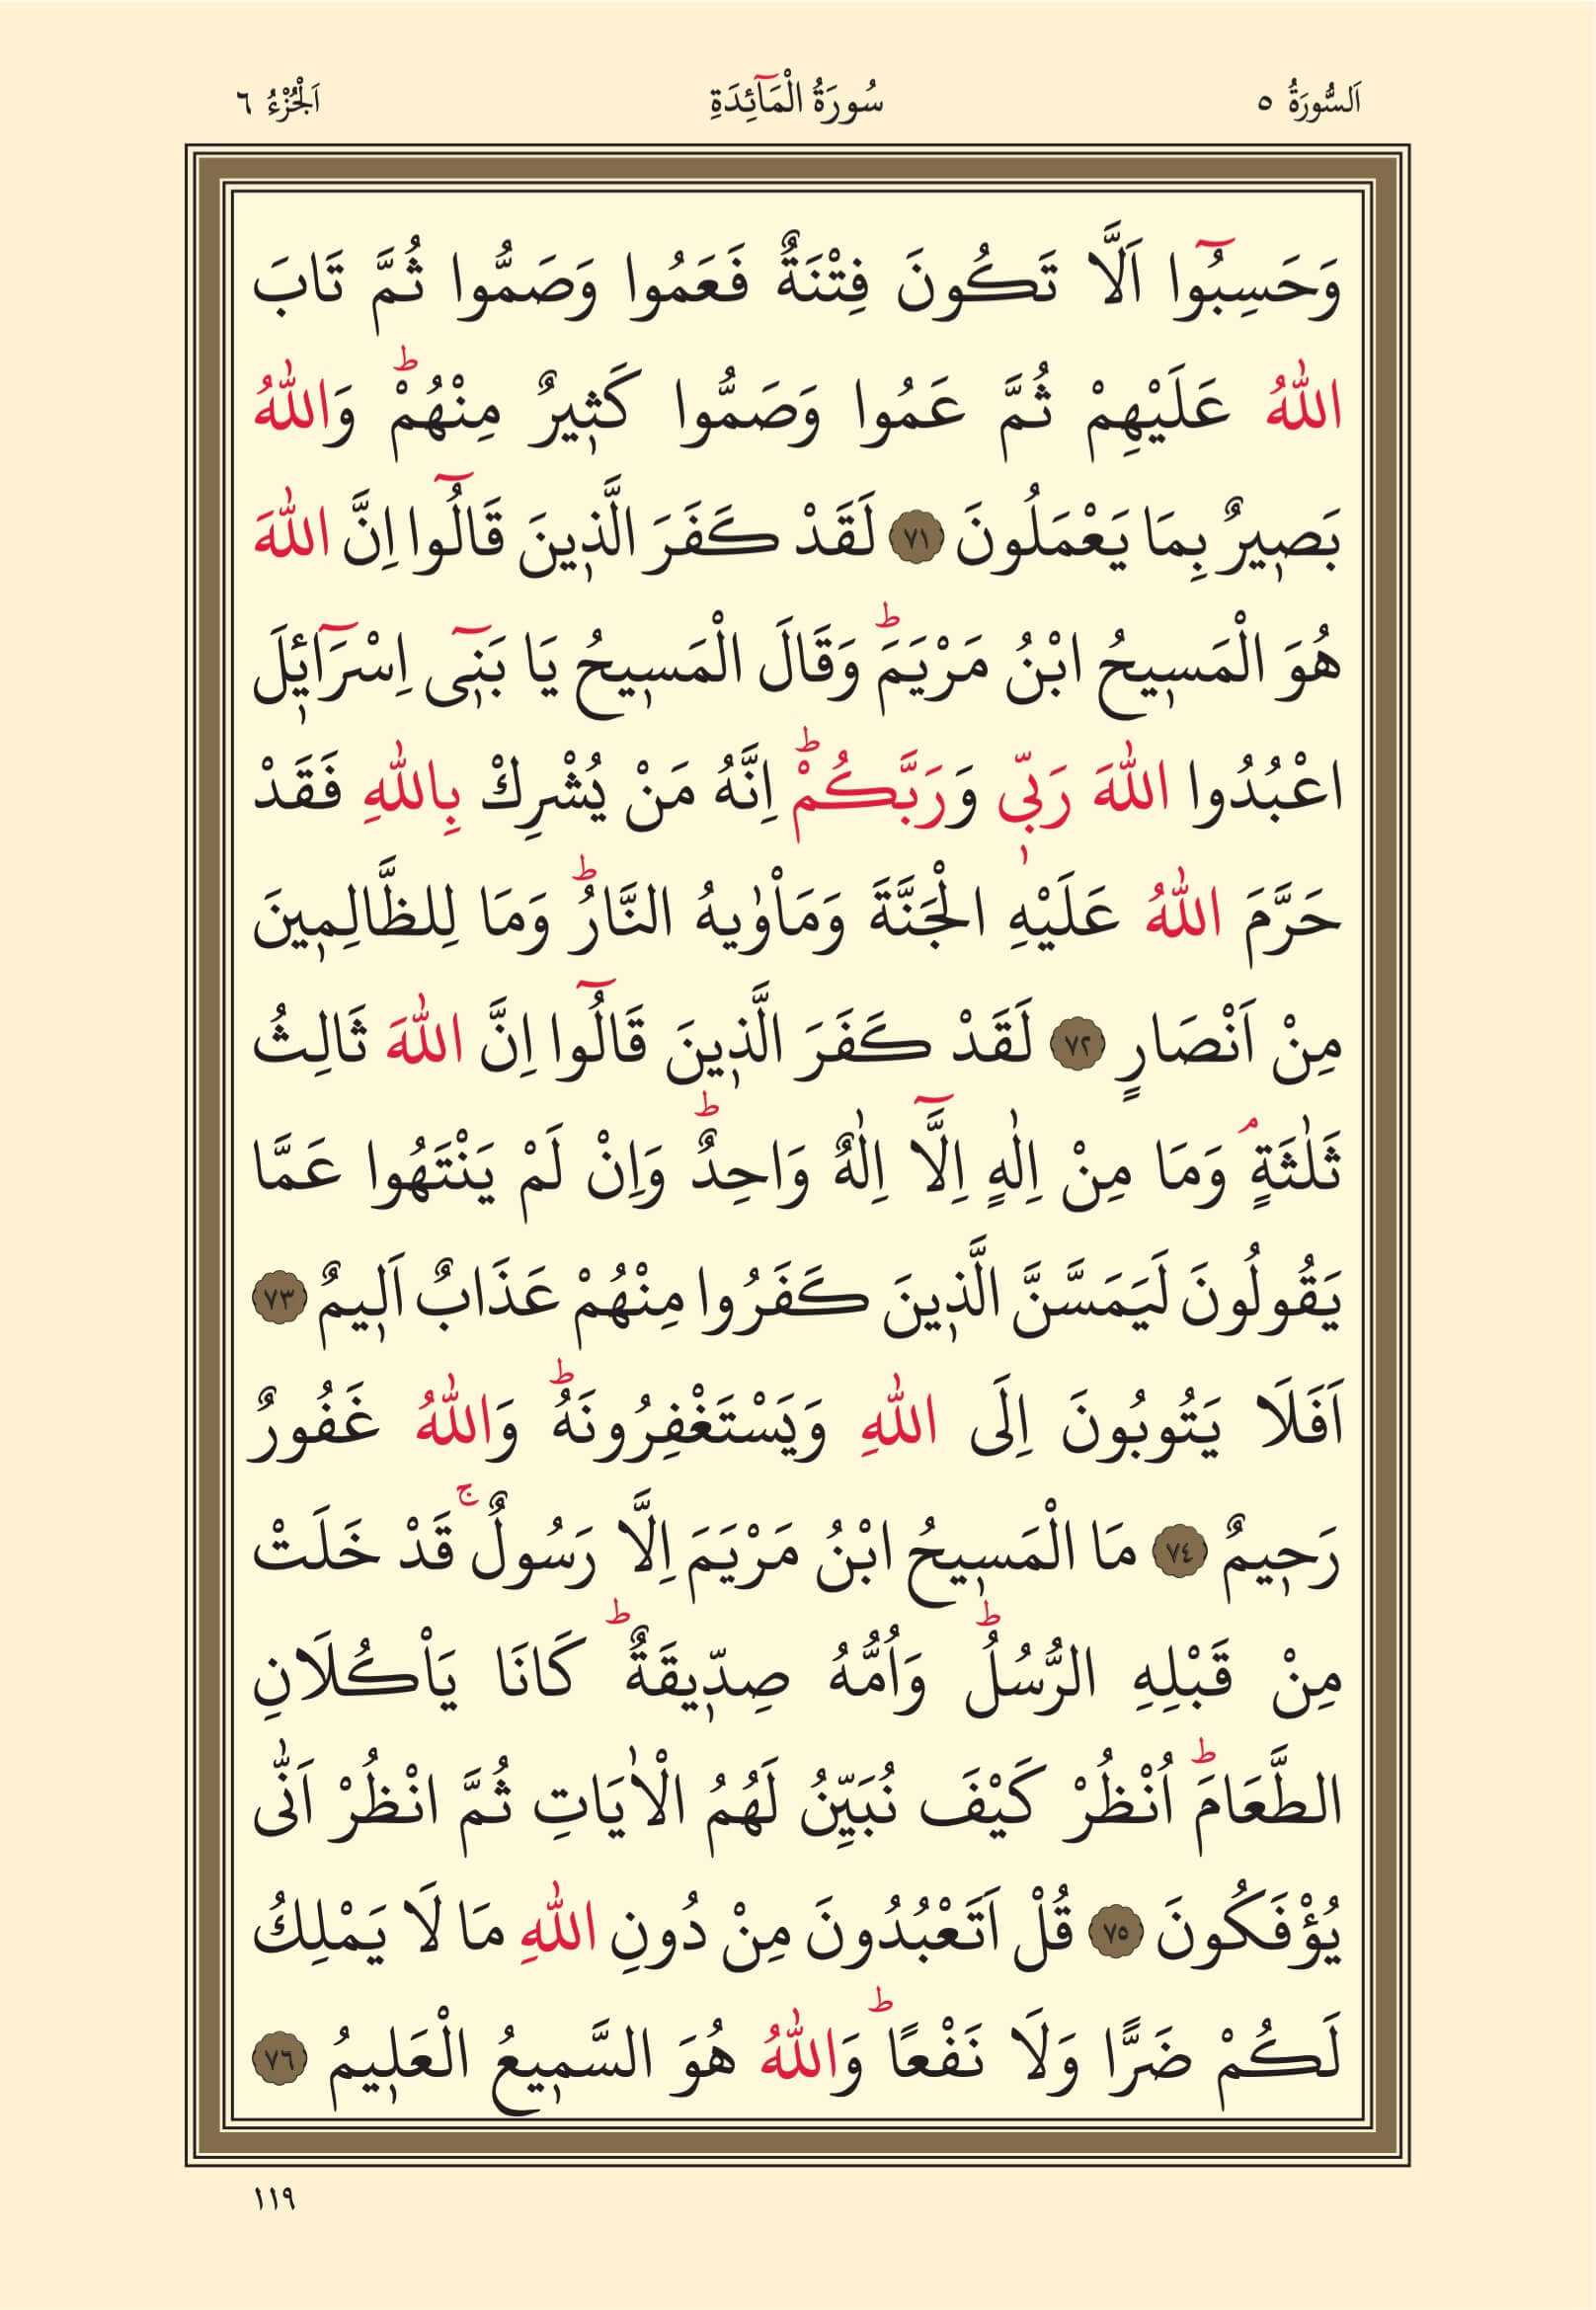 اَلسُّورَةُ ٥ سُورَةُ الْمَٓائِدَةِ اَلْجُزْءُ ٦
وَحَسِبُٓوا اَلَّا تَكُونَ فِتْنَةٌ فَعَمُوا وَصَمُّوا ثُمَّ تَابَ
اللّٰهُ عَلَيْهِمْ ثُمَّ عَمُوا وَصَمُّوا كَث۪يرٌ مِنْهُمْۜ وَاللّٰهُ
بَص۪يرٌ بِمَا يَعْمَلُونَ ﴿٧١﴾ لَقَدْ كَفَرَ الَّذ۪ينَ قَالُٓوا اِنَّ اللّٰهَ
هُوَ الْمَس۪يحُ ابْنُ مَرْيَمَۜ وَقَالَ الْمَس۪يحُ يَا بَن۪ٓى اِسْرَٓائ۪لَ
اعْبُدُوا اللّٰهَ رَبّ۪ى وَرَبَّكُمْۜ اِنَّهُ مَنْ يُشْرِكْ بِاللّٰهِ فَقَدْ
حَرَّمَ اللّٰهُ عَلَيْهِ الْجَنَّةَ وَمَاْوٰيهُ النَّارُۜ وَمَا لِلظَّالِم۪ينَ
مِنْ اَنْصَارٍ ﴿٧٢﴾ لَقَدْ كَفَرَ الَّذ۪ينَ قَالُٓوا اِنَّ اللّٰهَ ثَالِثُ
ثَلٰثَةٍۢ وَمَا مِنْ اِلٰهٍ اِلَّٓا اِلٰهٌ وَاحِدٌۜ وَاِنْ لَمْ يَنْتَهُوا عَمَّا
يَقُولُونَ لَيَمَسَّنَّ الَّذ۪ينَ كَفَرُوا مِنْهُمْ عَذَابٌ اَل۪يمٌ ﴿٧٣﴾
اَفَلَا يَتُوبُونَ اِلَى اللّٰهِ وَيَسْتَغْفِرُونَهُۜ وَاللّٰهُ غَفُورٌ
رَح۪يمٌ ﴿٧٤﴾ مَا الْمَس۪يحُ ابْنُ مَرْيَمَ اِلَّا رَسُولٌۚ قَدْ خَلَتْ
مِنْ قَبْلِهِ الرُّسُلُۜ وَاُمُّهُ صِدّ۪يقَةٌۜ كَانَا يَاْكُلَانِ
الطَّعَامَۜ اُنْظُرْ كَيْفَ نُبَيِّنُ لَهُمُ الْاٰيَاتِ ثُمَّ انْظُرْ اَنّٰى
يُؤْفَكُونَ ﴿٧٥﴾ قُلْ اَتَعْبُدُونَ مِنْ دُونِ اللّٰهِ مَا لَا يَمْلِكُ
لَكُمْ ضَرًّا وَلَا نَفْعًاۜ وَاللّٰهُ هُوَ السَّم۪يعُ الْعَل۪يمُ ﴿٧٦﴾
١١٩